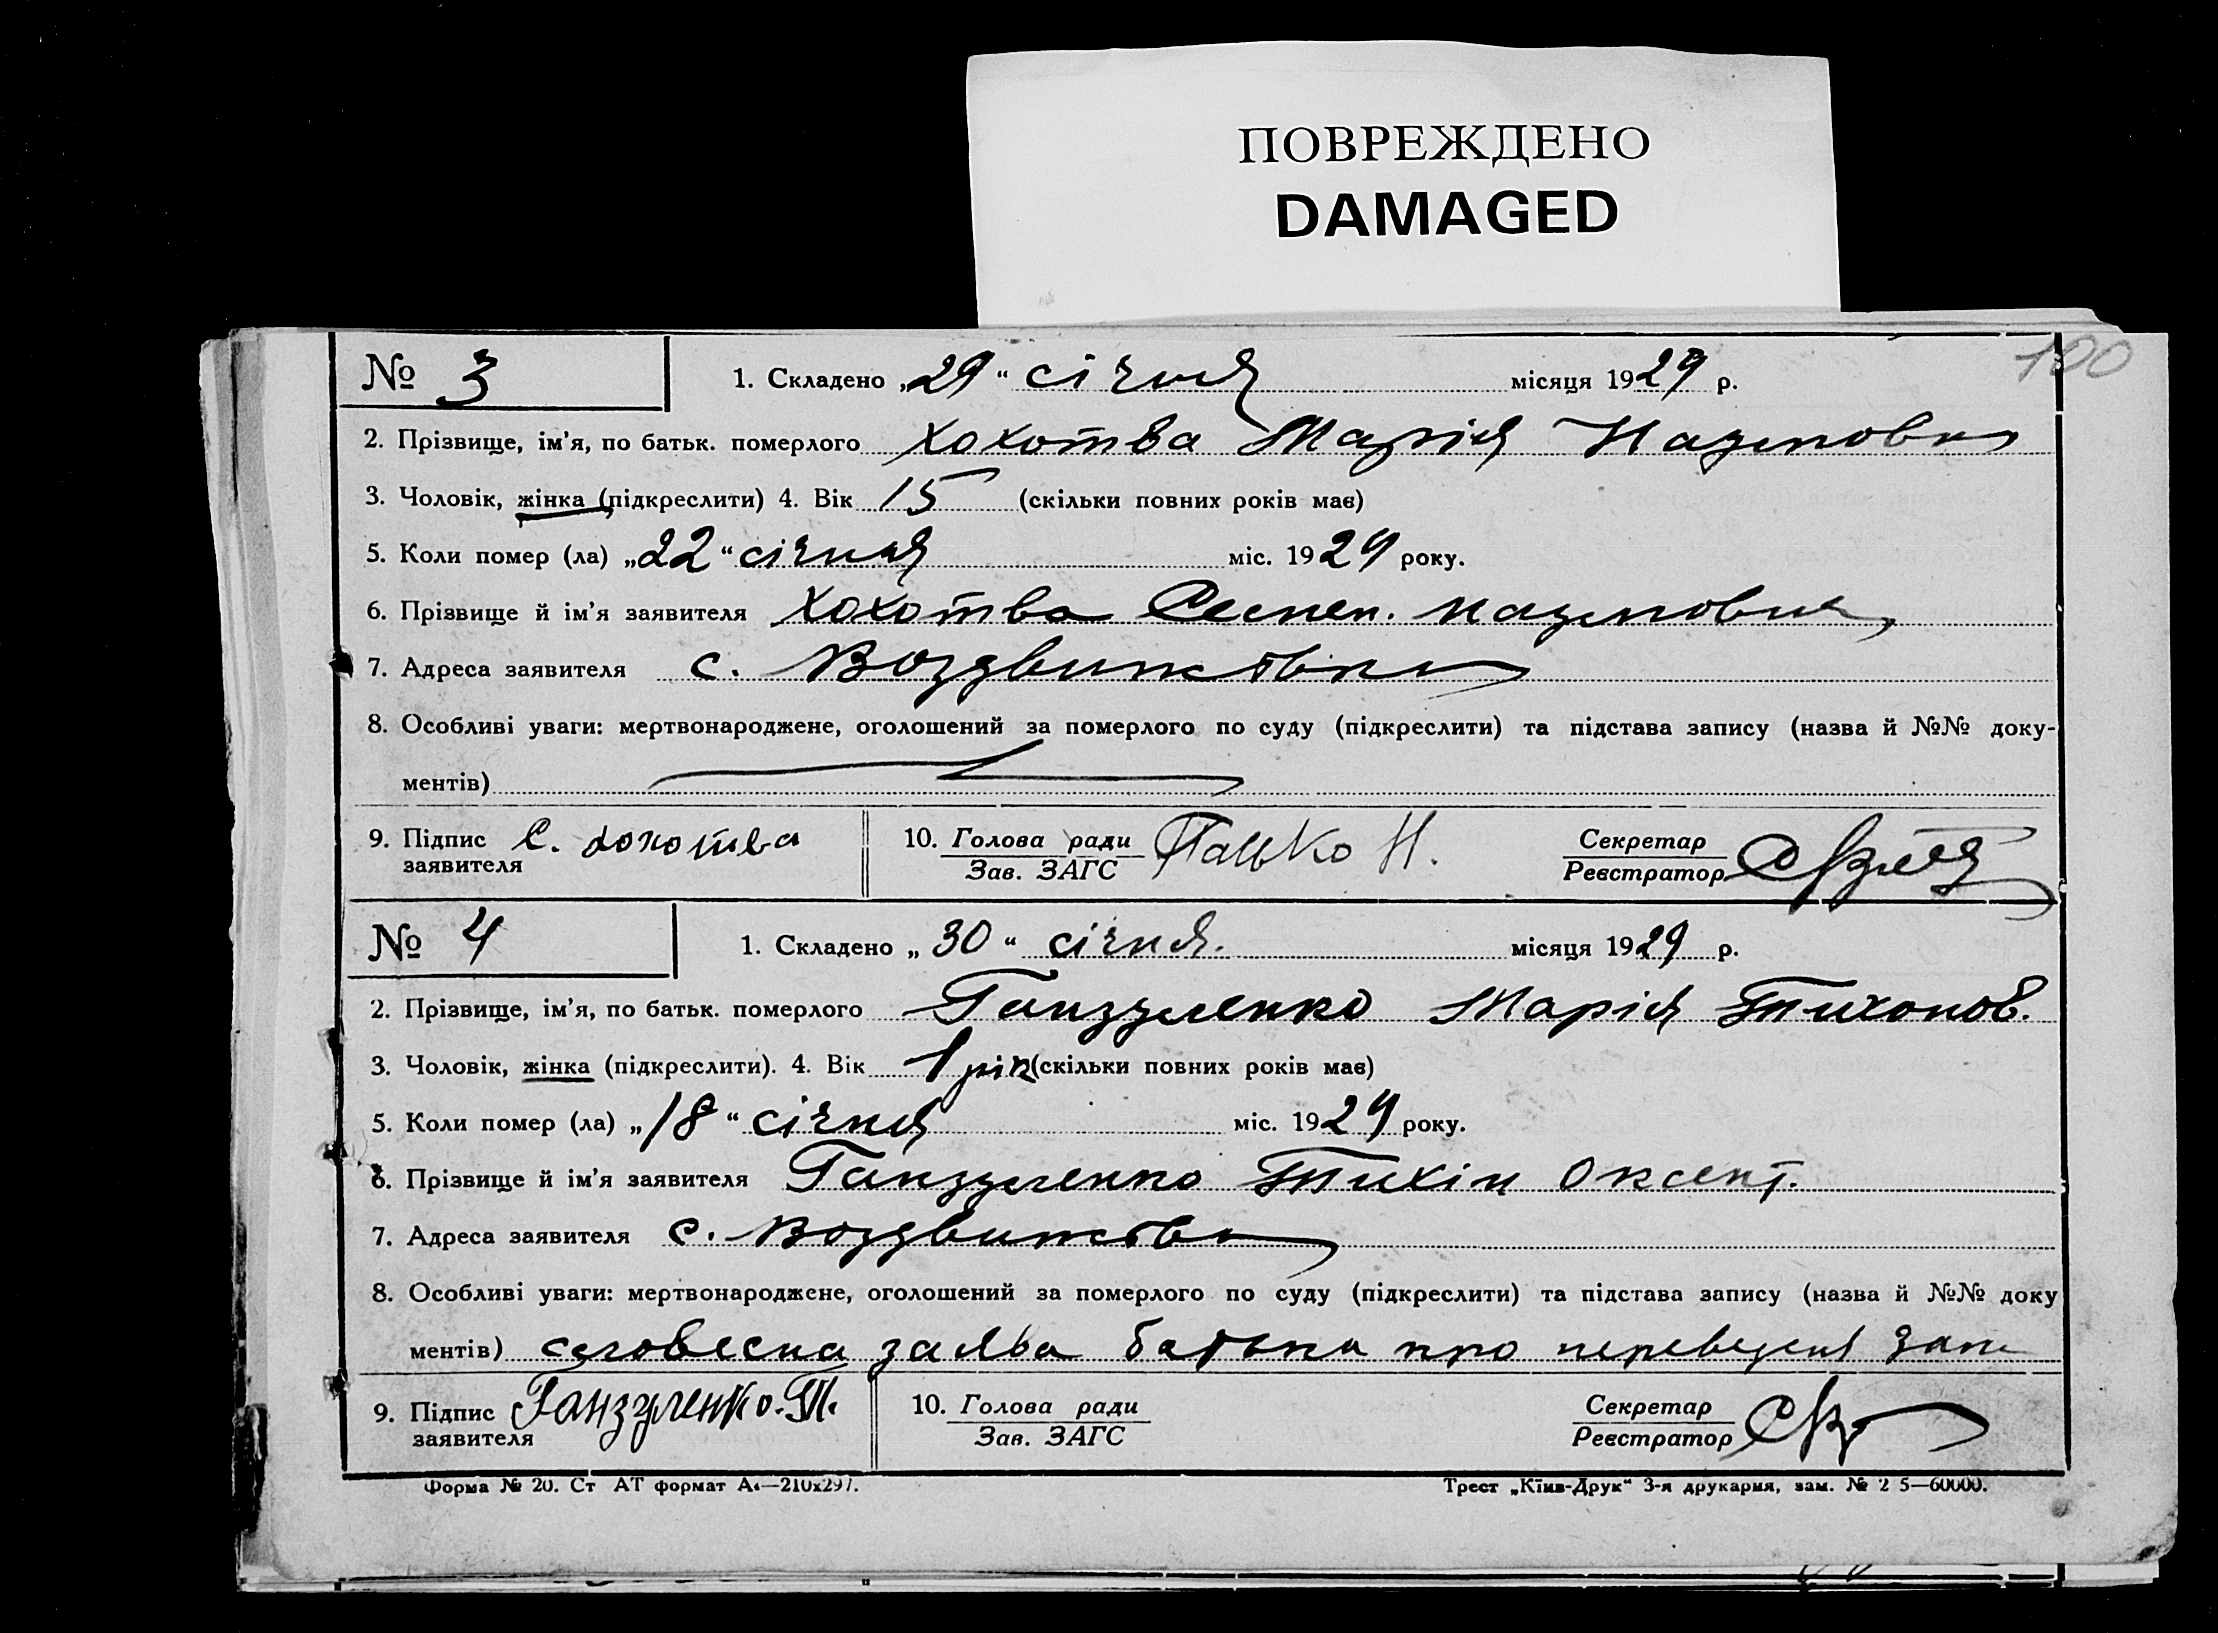 ПОВРЕЖДЕНО
DAMAGED
100
№ 3 1. Складено „29“ січня місяця 1929 р.
2. Прізвище, ім’я, по батьк. померлого Хохотва Марія Наумовна
3. Чоловік, жінка (підкреслити) 4. Вік 15 (скільки повних років має)
5. Коли помер (ла) „22“ січня міс. 1929 року.
6. Прізвище й ім’я заявителя Хохотва Наумовна
7. Адреса заявителя с. Воздвижівка
8. Особливі уваги: мертвонароджене, оголошений за померлого по суду (підкреслити) та підстава запису (назва й №№ доку-
ментів)
9. Підпис заявителя С. Хохотва 10. Голова ради Зав. ЗАГС Пацько Н. Секретар Реєстратор
№ 4 1. Складено „30“ січня. місяця 1929 р.
2. Прізвище, ім’я, по батьк. померлого Ганзуленко Марія Тихонов.
3. Чоловік, жінка (підкреслити). 4. Вік 1 рік (скільки повних років має)
5. Коли помер (ла) „18“ січня міс. 1929 року.
6. Прізвище й ім’я заявителя Ганзуленко Тихін Оксент.
7. Адреса заявителя с. Воздвижівка
8. Особливі уваги: мертвонароджене, оголошений за померлого по суду (підкреслити) та підстава запису (назва й №№ доку
ментів) словесна заява батька про
9. Підпис заявителя Ганзуленко. Т. 10. Голова ради Зав. ЗАГС Секретар Реєстратор
Форма № 20. Ст АТ формат А4—210х297. Трест „Київ-Друк“ 3-я друкарня, зам. № 2 5—60000.